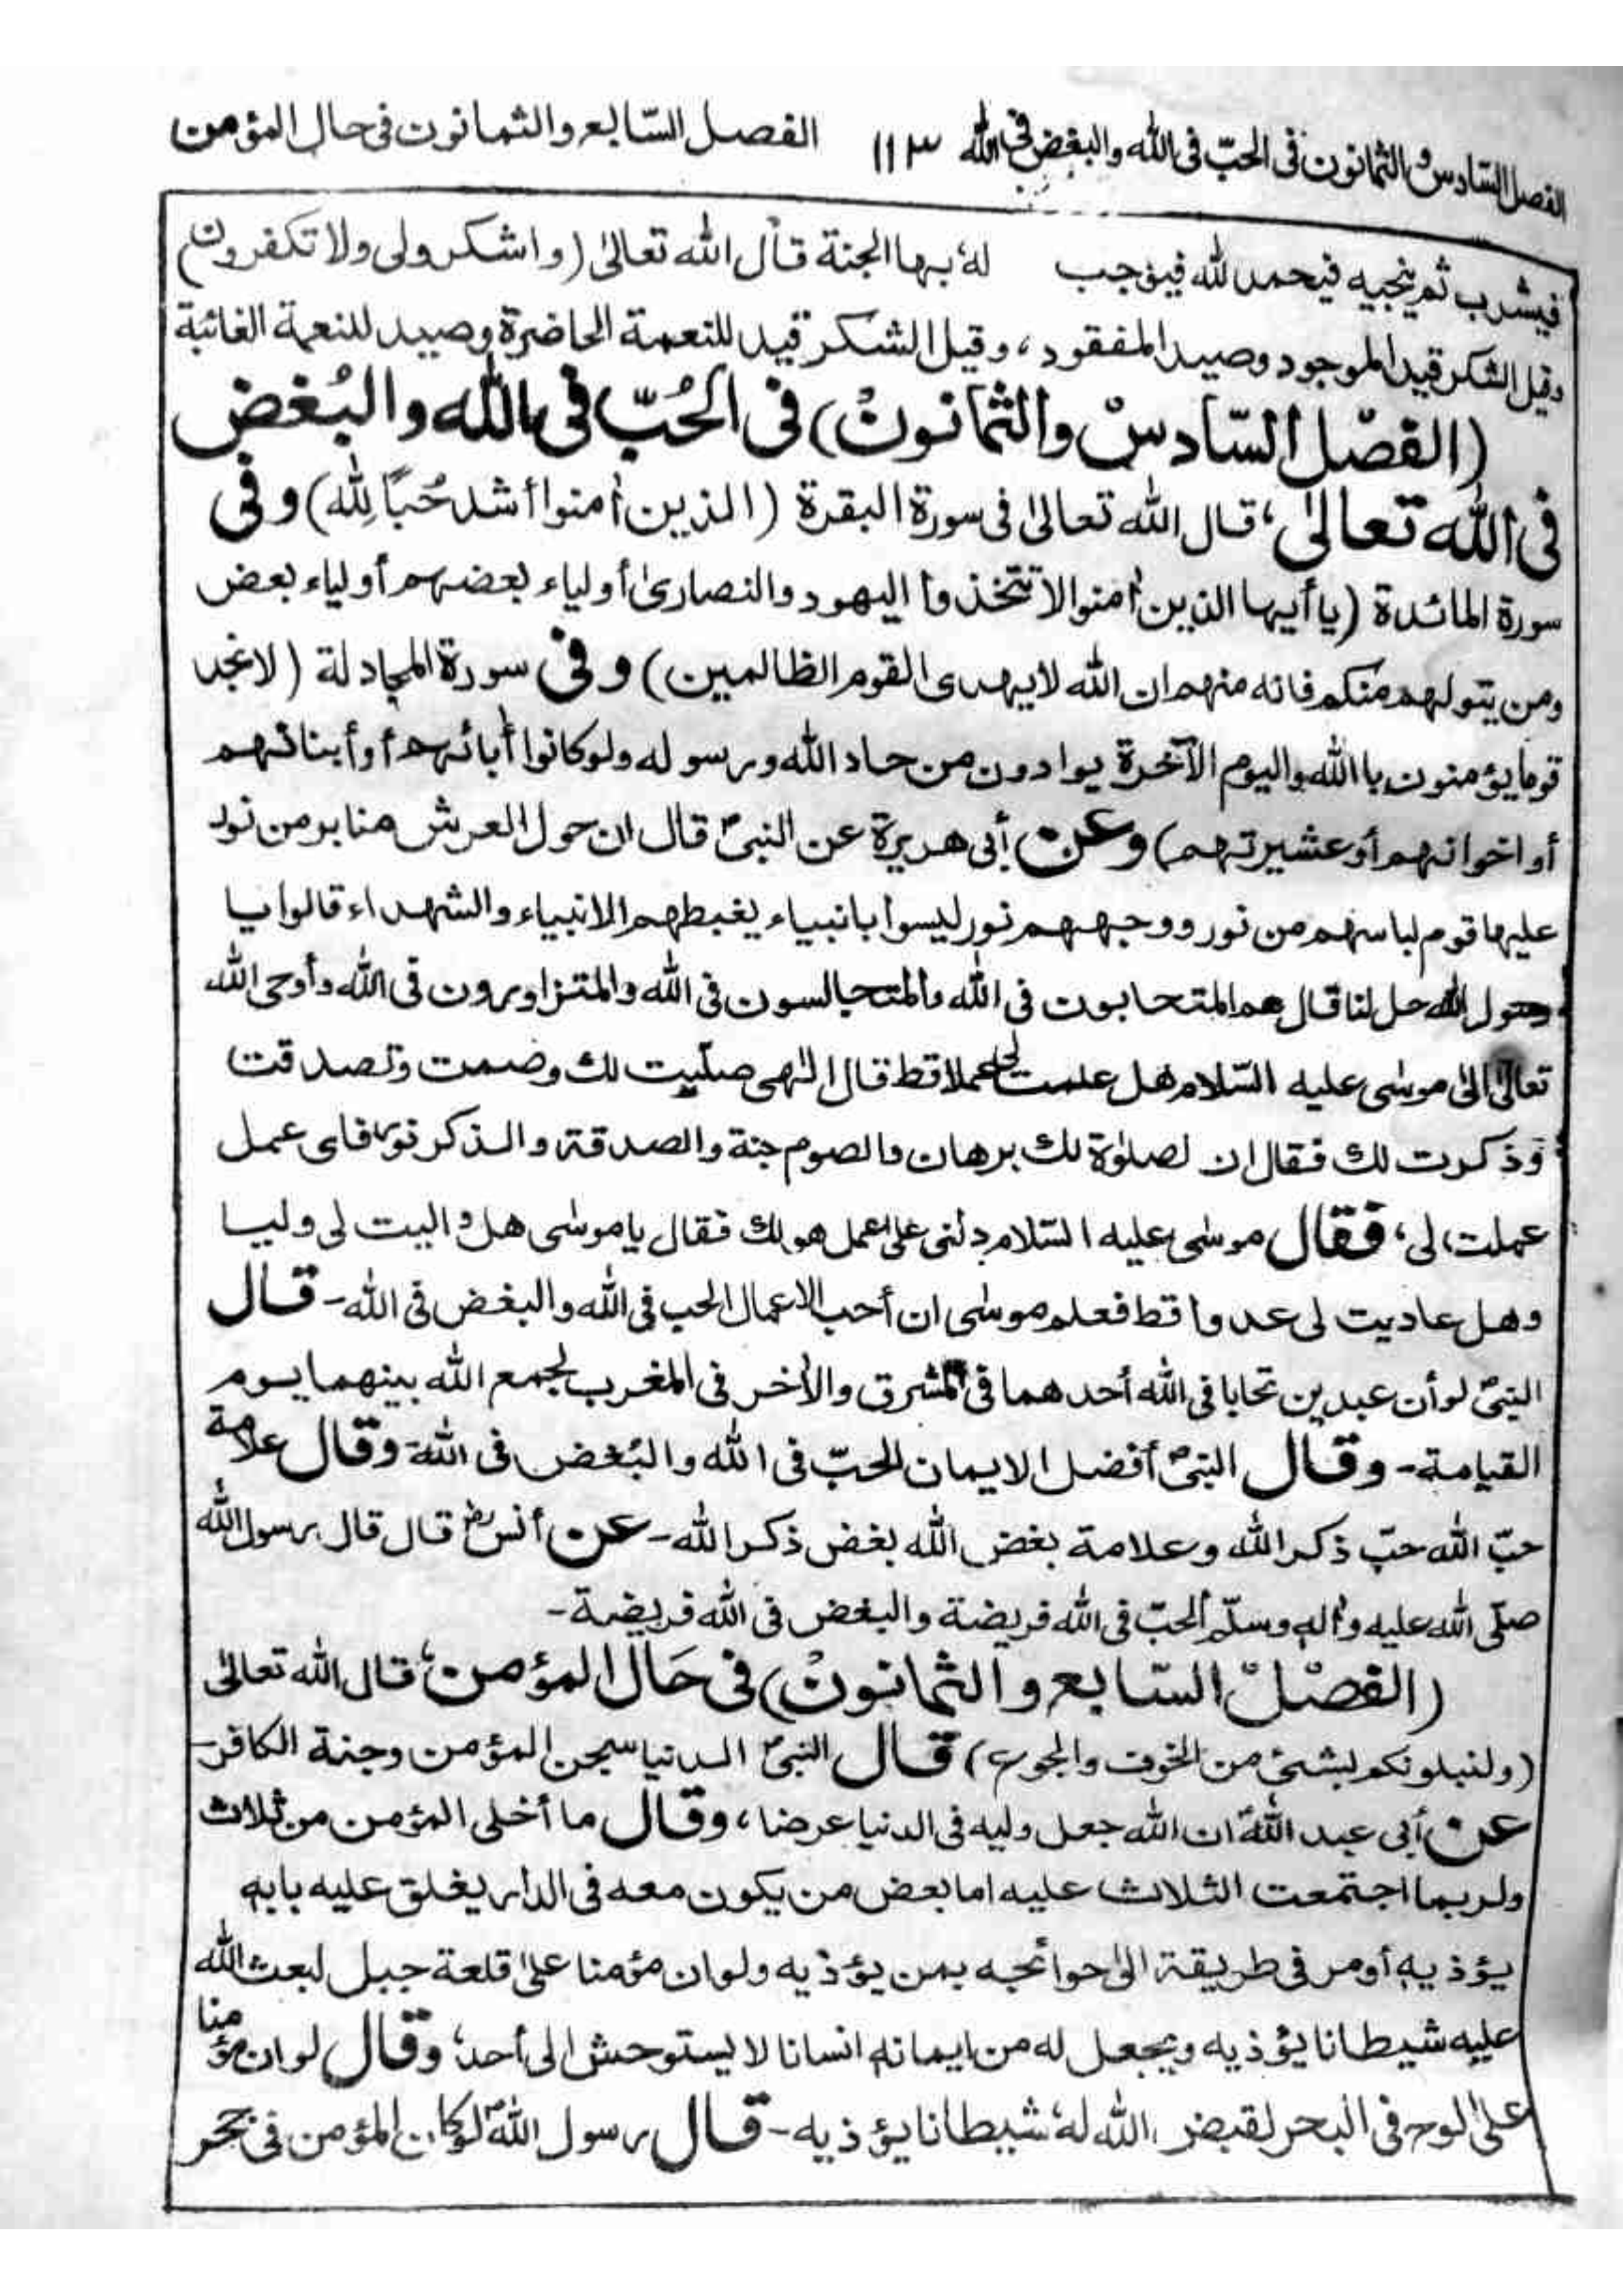 الفصل السّادس والثمانون فى الحبّ فى الله والبغض فى الله ١١٣ الفصل السّابع والثمانون فى حال المؤمن
فيشرب ثم ينجيه فيحمد لله فيؤجب لهٗ بها الجنة قال الله تعالىٰ (واشكرولى ولا تكفرون)
وقيل الشكر قيد الموجود وصيد المفقود، وقيل الشكر قيد للنعمة الحاضرة وصيد للنعمة الغائبة
(الفصْل السّادسْ والثمانونْ) فى الحُبّ فى الله والبُغض
فى الله تعالىٰ، قال الله تعالىٰ فى سورة البقرة (الذين أمنوا أشد حُبًا لِلّه) وفى
سورة المائدة (يا أيها الذين أمنوا لا تتخذوا اليهود والنصارىٰ أولياء بعضهم أولياء بعض
ومن يتولهم منكم فانه منهم ان الله لا يهدى القوم الظالمين) وفى سورة المجادلة (لا تجد
قوما يؤمنون باالله واليوم الآخرة يوادون من حاد الله ورسوله ولو كانوا أبائهم أو أبنائهم
أو اخوانهم أو عشيرتهم) وعن أبى هريرة عن النبىؐ قال ان حول العرش منابر من نور
عليها قوم لباسهم من نور ووجههم نور ليسوا بانبياء يغبطهم الانبياء والشهداء قالوا يا
رسول الله حل لنا قال هم المتحابون فى الله والمتحالسون فى الله والمتزاورون فى الله وأوحى الله
تعالىٰ الىٰ موسٰى عليه السّلام هل علمت لى عملا قط قال الٰهى صلّيت لك وصمت وتصدقت
وذكرت لك فقال ان لصلوٰة لك برهان والصوم جنة والصدقة والذكر نور فاى عمل
عملت لى، فقال موسٰى عليه السّلام دلنى علىٰ عمل هو لك فقال يا موسٰى هل واليت لى وليا
وهل عاديت لى عدوا قط فعلم موسٰى ان أحب الاعمال الحب فى الله والبغض فى الله- قال
النبىؐ لو أن عبدين تحابا فى الله أحدهما فى المشرق والأخر فى المغرب لجمع الله بينهما يوم
القيامة- وقال النبىؐ أفضل الايمان الحبّ فى الله والبُغض فى الله- وقال علامة
حبّ الله حبّ ذكر الله وعلامة بغض الله بغض ذكر الله- عن أنسؓ قال قال رسول الله
صلّى الله عليه واٰله وسلّم الحبّ فى الله فريضة والبغض فى الله فريضة-
(الفصْلْ السّابع والثمانونْ) فى حَال المؤمن، قال الله تعالىٰ
(ولنبلونكم بشئ من الخوف والجوع) قال النبىؐ الدنيا سجن المؤمن وجنة الكافر-
عن أبى عبد اللهؑ ان الله جعل وليه فى الدنيا عرضا، وقال ما أخلى المؤمن من ثلاث
ولربما اجتمعت الثلاث عليه اما بعض من يكون معه فى الدار يغلق عليه بابه
يؤذيه أومر فى طريقة الىٰ حوائجه بمن يؤذيه ولوان مؤمنا علىٰ قلعة جبل لبعث الله
عليه شيطانا يؤذيه ويجعل له من ايمانه انسانا لا يستوحش الى أحد، وقال لوان مؤمنا
علىٰ لوح فى البحر لقبض الله لهٗ شيطانا يؤذيه- قال رسول اللهؐ لو كان المؤمن فى حجر